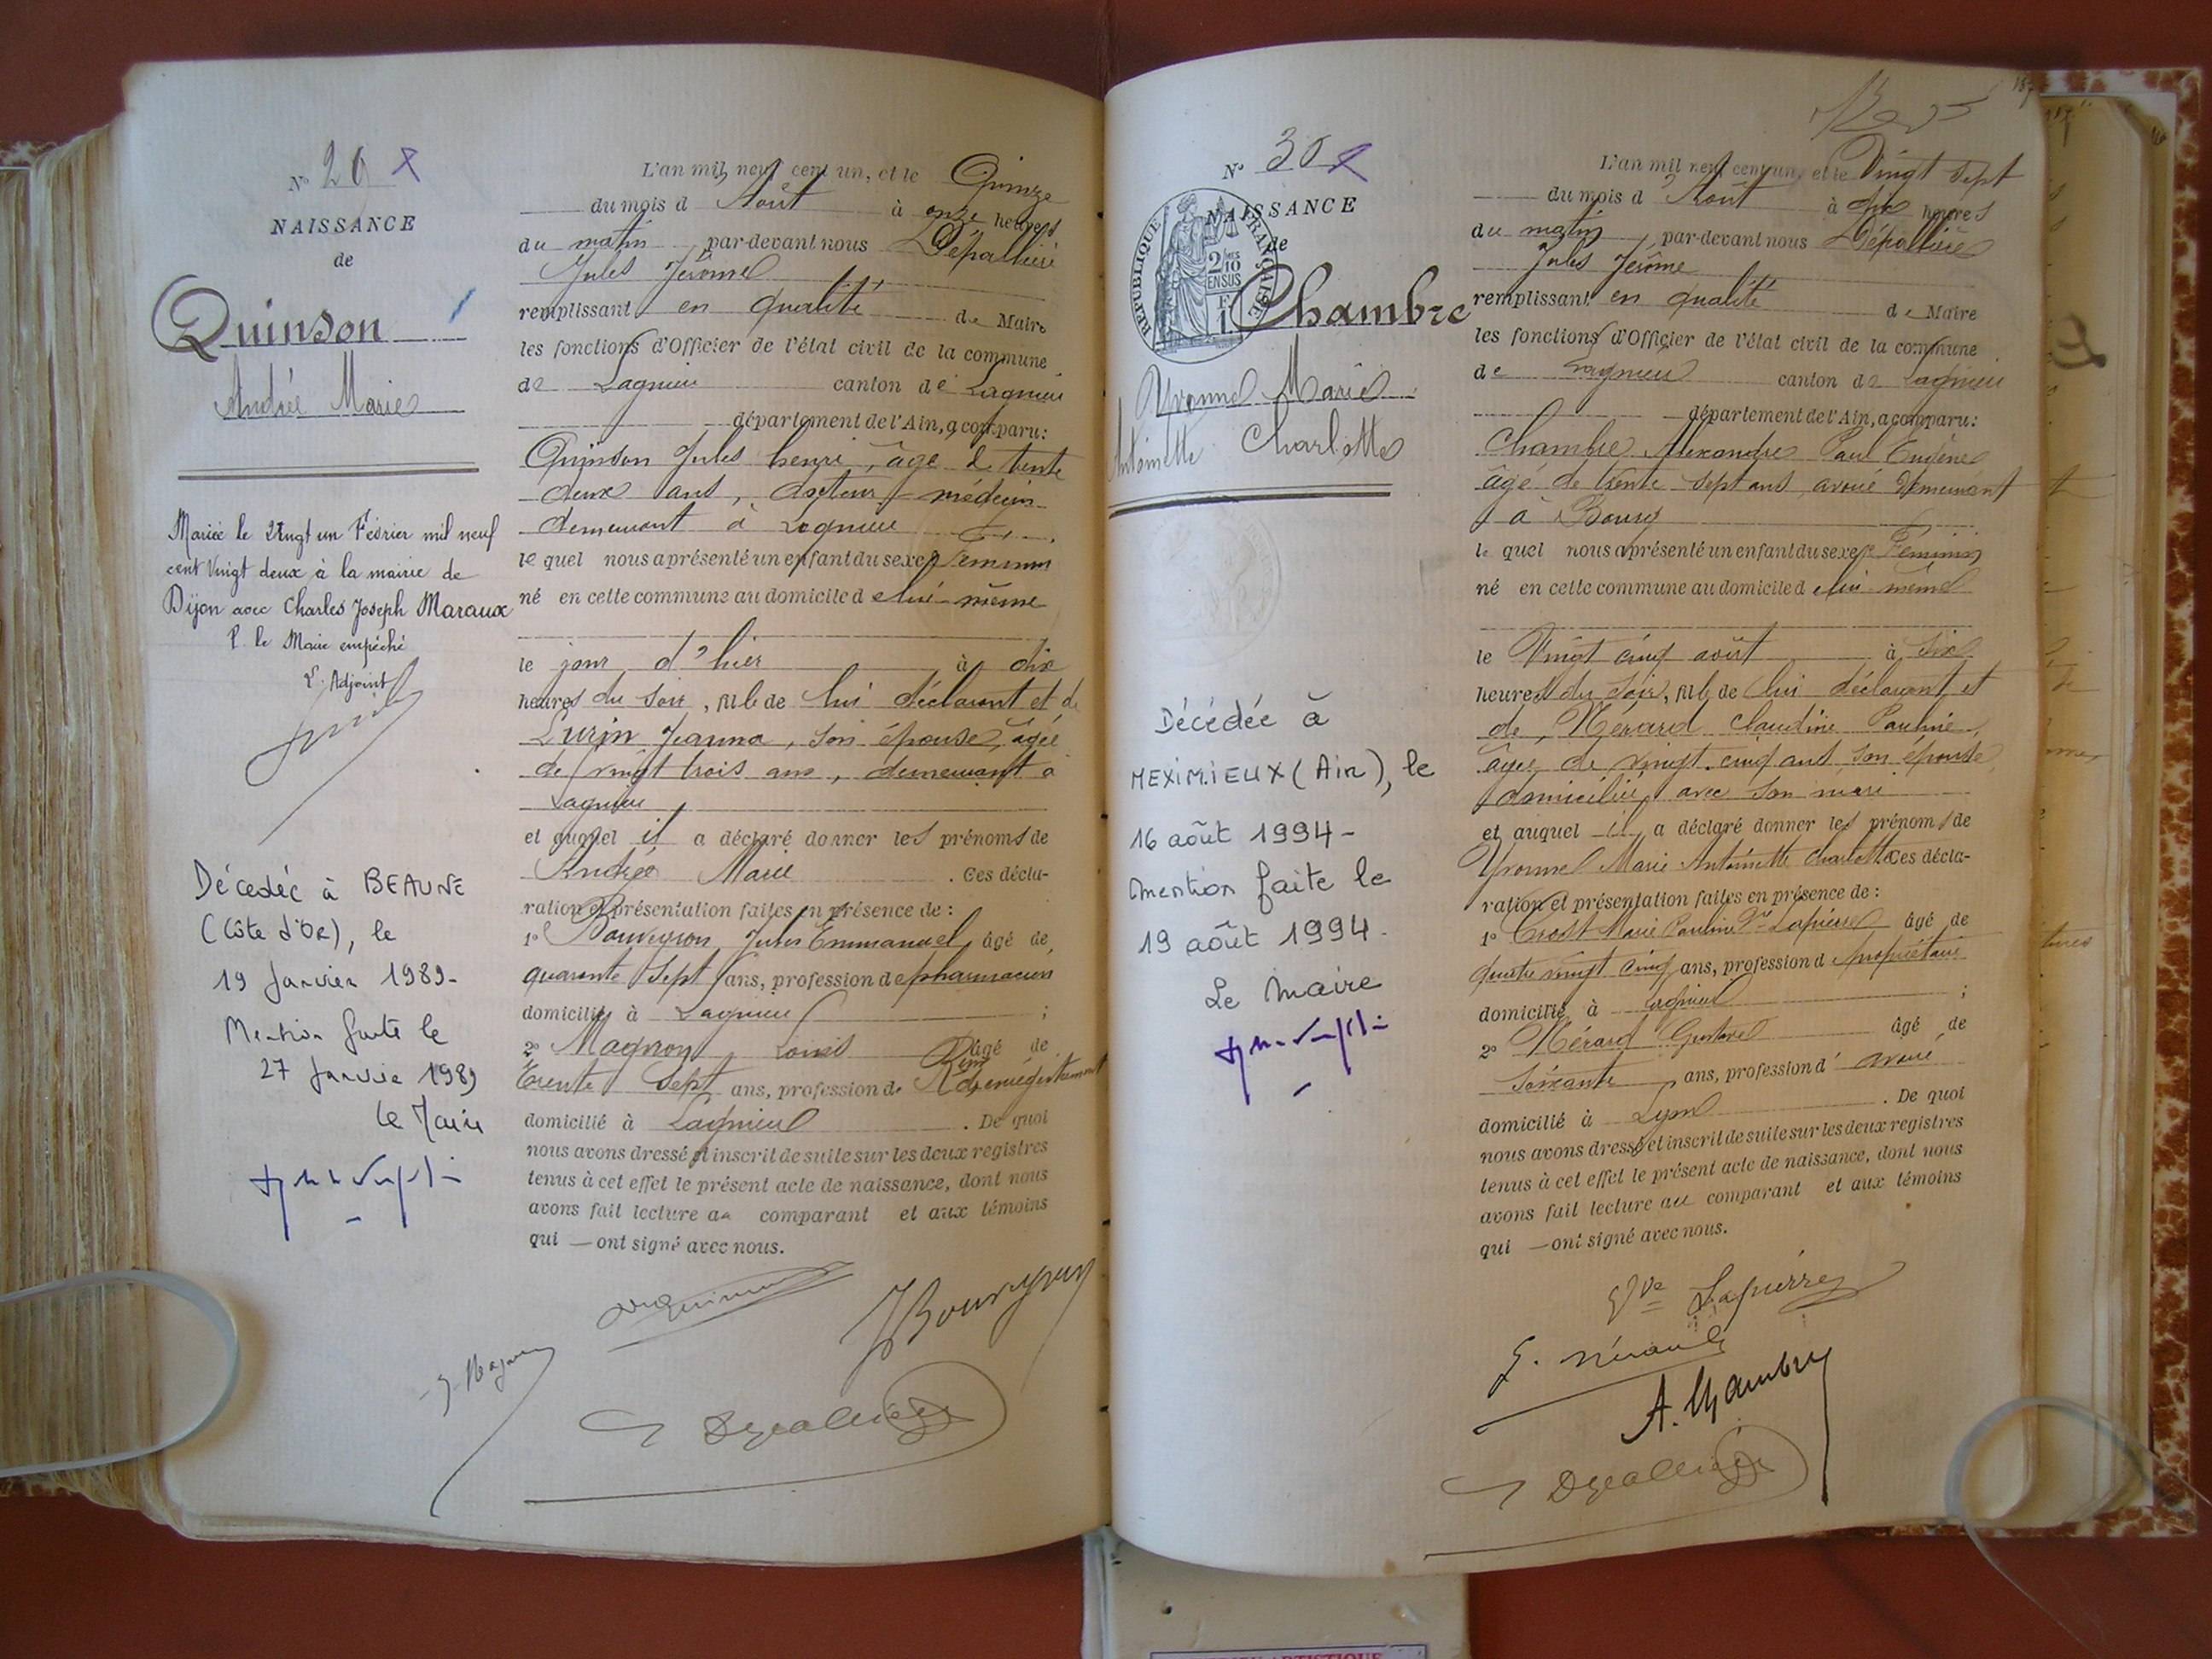 N° 29
NAISSANCE
de
Quinson
Andrée Marie
Mariée le Vingt un Février mil neuf
cent vingt deux à la mairie de
Dijon avec Charles Joseph Maraux
P. le Maire empêché
L'Adjoint
Décédée à BEAUNE
(Côte d'Or), le
19 Janvier 1989-
Mention faite le
27 Janvier 1989
Le Maire
L'an mil neuf cent un, et le Quinze
du mois d'Août à onze heures
du matin, par-devant nous Dépallière
Jules Jérôme
remplissant en qualité de Maire
les fonctions d'Officier de l'état civil de la commune
de Lagnieu canton de Lagnieu
département de l'Ain, a comparu:
Quinson Jules henri, âgé de trente
deux ans, docteur-médecin
demeurant à Lagnieu
lequel nous a présenté un enfant du sexe féminin
né en cette commune au domicile de lui-même
le jour d'hier à dix
heures du soir, fille de lui déclarant et de
Lurin Jeanna, son épouse, âgée
de vingt trois ans, demeurant à
Lagnieu
et auquel il a déclaré donner les prénoms de
Andrée Marie. Ces décla-
ration et présentation faites en présence de :
1° Bouveyron Jules Emmanuel, âgé de
quarante sept ans, profession de pharmacien
domicilié à Lagnieu ;
2° Magnon Louis âgé de
trente sept ans, profession de
domicilié à Lagnieu. De quoi
nous avons dressé et inscrit de suite sur les deux registres
tenus à cet effet le présent acte de naissance, dont nous
avons fait lecture au comparant et aux témoins
qui — ont signé avec nous.
JBouveyron
Depallière
N° 30
NAISSANCE
de
RÉPUBLIQUE FRANÇAISE
2/10 EN SUS
1 F
Chambre
Yvonne Marie
Antoinette Charlotte
Décédée à
MEXIMIEUX (Ain), le
16 août 1994-
mention faite le
19 août 1994.
Le Maire
L'an mil neuf cent un, et le Vingt sept
du mois d'Août à dix heures
du matin, par-devant nous Dépallière
Jules Jérôme
remplissant en qualité de Maire
les fonctions d'Officier de l'état civil de la commune
de Lagnieu canton de Lagnieu
département de l'Ain, a comparu:
Chambre Alexandre Paul Eugène
âgé de trente sept ans, avoué demeurant
à Bourg
lequel nous a présenté un enfant du sexe Féminin
né en cette commune au domicile de lui même
le Vingt cinq août à six
heures du soir, fille de lui déclarant et
de Mérard Claudine Pauline,
âgée de vingt-cinq ans, son épouse
domiciliée avec son mari
et auquel il a déclaré donner les prénoms de
Yvonne Marie Antoinette Charlotte Ces décla-
ration et présentation faites en présence de :
1° Crost Marie Pauline Vve Lapierre âgé de
quatre vingt cinq ans, profession de propriétaire
domicilié à Lagnieu ;
2° Mérard Gustave âgé de
soixante ans, profession d'avoué
domicilié à Lyon. De quoi
nous avons dressé et inscrit de suite sur les deux registres
tenus à cet effet le présent acte de naissance, dont nous
avons fait lecture au comparant et aux témoins
qui — ont signé avec nous.
Vve Lapierre
G. Mérard
A. Chambre
Depallière